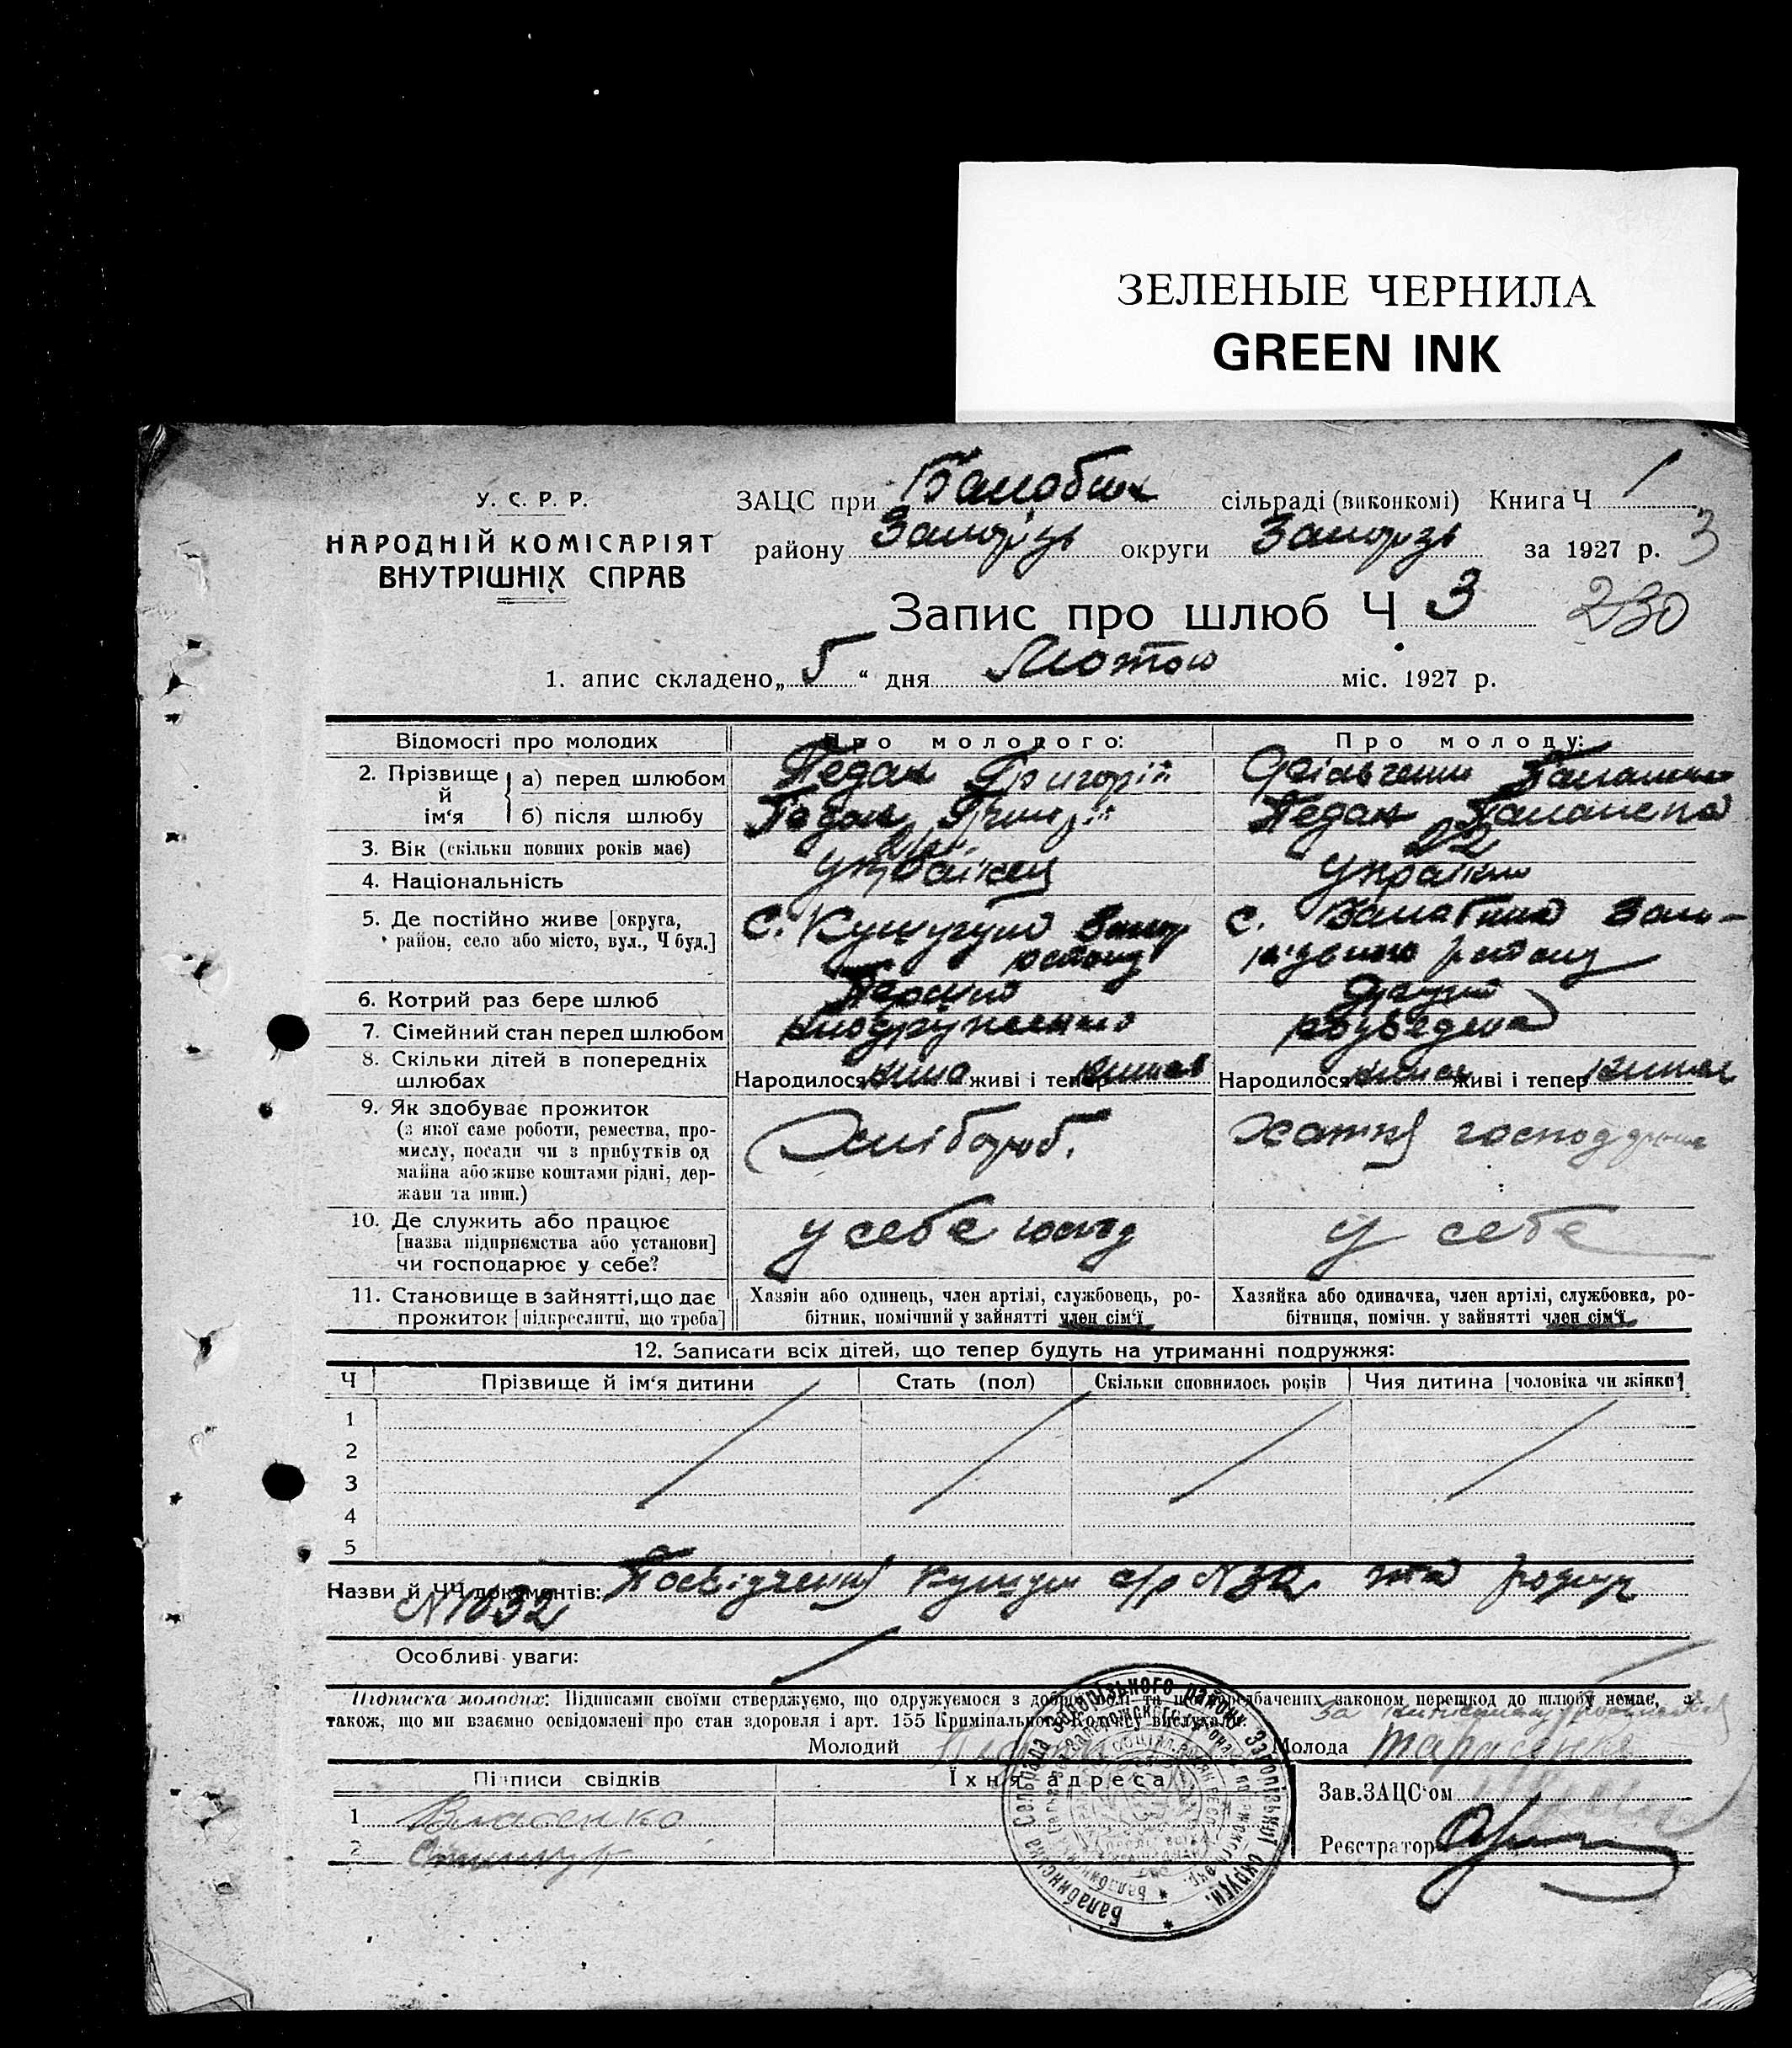 ЗЕЛЕНЫЕ ЧЕРНИЛА
GREEN INK
У. С. Р. Р.
НАРОДНІЙ КОМІСАРІЯТ
ВНУТРІШНІХ СПРАВ
ЗАЦС при сільраді (виконкомі) Книга Ч 1
району Запоріз округи Запорізь за 1927 р. 3
Запис про шлюб Ч 3 230
1. апис складено „5“ дня Лютого міс. 1927 р.
Відомості про молодих Про молодого: Про молоду:
2. Прізвище й ім‘я
а) перед шлюбом Педак Григорій
б) після шлюбу Педак Григорій Педак
3. Вік (скільки повних років має) 22
4. Національність українец україн
5. Де постійно живе [округа, район, село або місто, вул., Ч буд.] с. Кушугум Запор району с. Запорізького району
6. Котрий раз бере шлюб Первий Другий
7. Сімейний стан перед шлюбом розведена
8. Скільки дітей в попередніх шлюбах Народилося живі і тепер Народилося живі і тепер
9. Як здобуває прожиток
(з якої саме роботи, ремества, про-
мислу, посади чи з прибутків од
майна або живе коштами рідні, дер-
жави та инш.)
Хлібороб. Хатня
10. Де служить або працює
[назва підприємства або установи]
чи господарює у себе?
у себе господ у себе
11. Становище в зайнятті, що дає
прожиток [підкреслити, що треба]
Хазяїн або одинець, член артілі, службовець, ро-
бітник, помічний у зайнятті член сім‘ї
Хазяйка або одиначка, член артілі, службовка, ро-
бітниця, помічн. у зайнятті член сім‘ї
12. Записати всіх дітей, що тепер будуть на утриманні подружжя:
Ч Прізвище й ім‘я дитини Стать (пол) Скільки сповнилось років Чия дитина [чоловіка чи жінки]
1
2
3
4
5
Назви й ЧЧ документів: Посвідчення Кушуг с/р N 32 та розвід
N 1032
Особливі уваги:
Підписка молодих: Підписами своїми стверджуємо, що одружуємося з доброї волі та що передбачених законом перешкод до шлюбу немає, а
також, що ми взаємно освідомлені про стан здоровля і арт. 155 Кримінального Кодексу вислухали.
Молодий Молода Тарасенко
Підписи свідків Їхня адреса Зав. ЗАЦС‘ом
1 Власенко
2 Реєстратор
Балабинська Сельрада Запорізького району Запорізької округи.